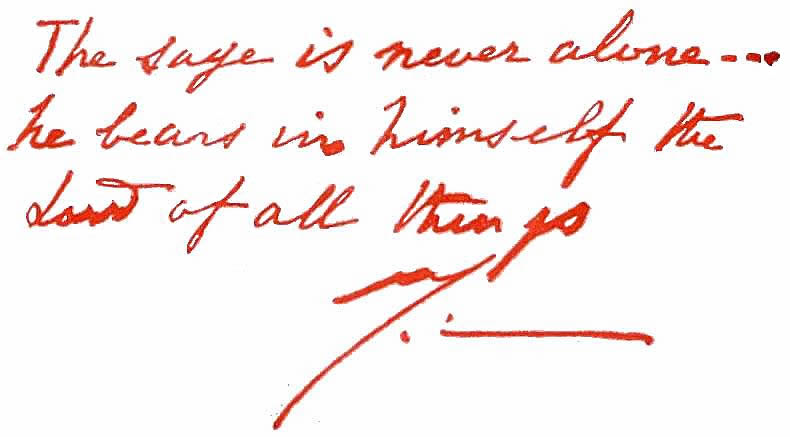 The sage is never alone----
he bears in himself the
Lord of all things